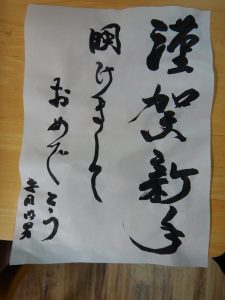 謹賀新年
明けまして
おめでとう